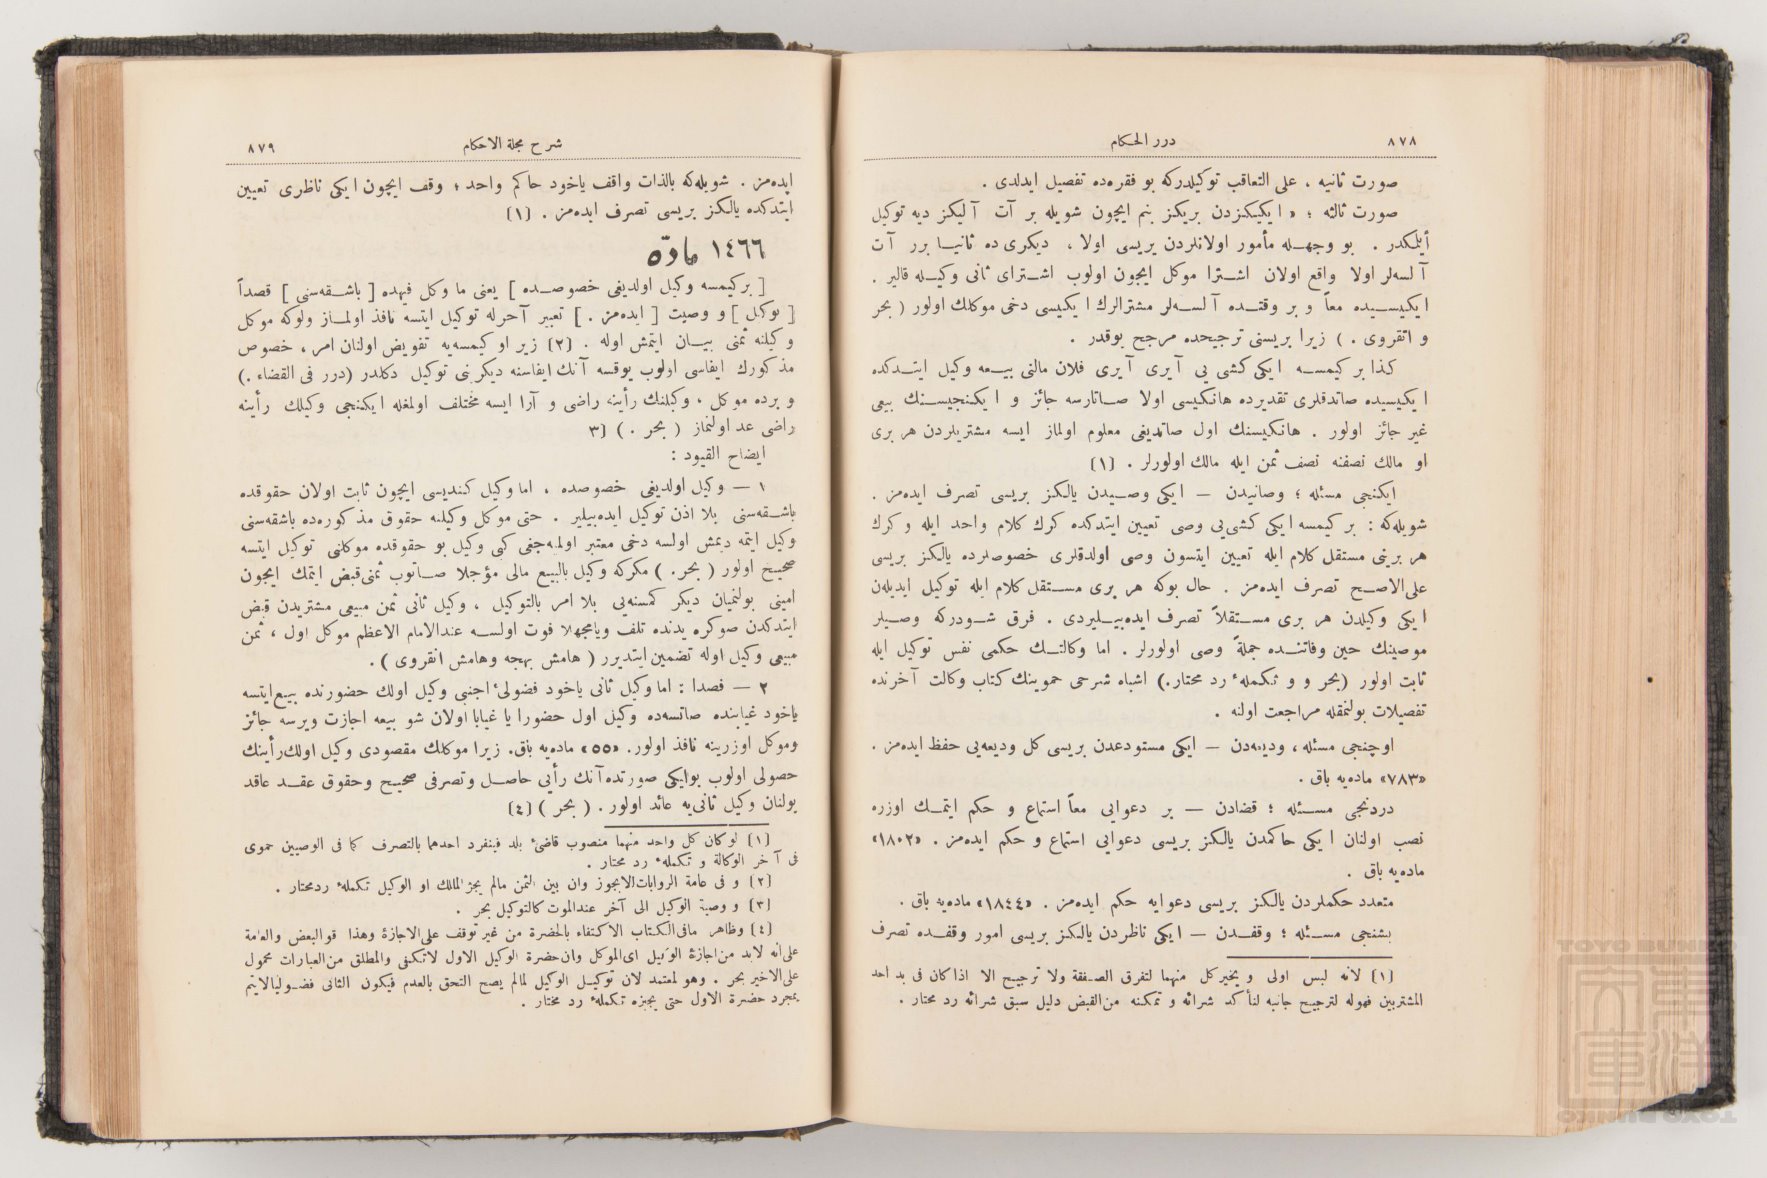 ٨٧٨
درر الحكام
صورت ثانيه ، على التعاقب توكيلدركه بو فقره‌ده تفصيل ايدلدى .
صورت ثالثه ؛ « ايكيكزدن بريكز بنم ايچون شويله بر آت آليكز ديه توكيل
أيلمكدر . بو وجهله مأمور اولانلردن بريسى اولا ، ديكرى ده ثانيا برر آت
آلسه‌لر اولا واقع اولان اشترا موكل ايچون اولوب اشتراى ثانى وكيله قالير .
ايكيسيده معاً و بر وقتده آلسه‌لر مشترالرك ايكيسى دخى موكلك اولور ( بحر
و انقروى . ) زيرا بريسنى ترجيحده مرجح يوقدر .
كذا بر كيمسه ايكى كشى يى آيرى آيرى فلان مالنى بيعه وكيل ايتدكده
ايكيسيده صاتدقلرى تقديرده هانكيسى اولا صاتارسه جائز و ايكنجيسنك بيعى
غير جائز اولور . هانكيسنك اول صاتديغى معلوم اولماز ايسه مشتريلردن هر برى
او مالك نصفنه نصف ثمن ايله مالك اولورلر . [١]
ايكنجى مسئله ؛ وصانيدن — ايكى وصيدن يالكز بريسى تصرف ايده‌مز .
شويله‌كه : بر كيمسه ايكى كشى‌يى وصى تعيين ايتدكده كرك كلام واحد ايله و كرك
هر برينى مستقل كلام ايله تعيين ايتسون وصى اولدقلرى خصوصلرده يالكز بريسى
على‌الاصح تصرف ايده‌مز . حال بوكه هر برى مستقل كلام ايله توكيل ايديلن
ايكى وكيلدن هر برى مستقلاً تصرف ايده‌بيليردى . فرق شودركه وصيلر
موصينك حين وفاتنده جملةً وصى اولورلر . اما وكالتك حكمى نفس توكيل ايله
ثابت اولور (بحر و و تكملهٔ رد محتار.) اشباه شرحى حموينك كتاب وكالت آخرنده
تفصيلات بولنمقله مراجعت اولنه .
اوچنجى مسئله ، وديعه‌دن — ايكى مستودعدن بريسى كل وديعه‌يى حفظ ايده‌مز .
«٧٨٣» ماده‌يه باق .
دردنجى مسئله ؛ قضادن — بر دعوايى معاً استماع و حكم ايتمك اوزره
نصب اولنان ايكى حاكمدن يالكز بريسى دعوايى استماع و حكم ايده‌مز . «١٨٠٢»
ماده‌يه باق .
متعدد حكملردن يالكز بريسى دعوايه حكم ايده‌مز . «١٨٤٤» ماده‌يه باق .
بشنجى مسئله ؛ وقفدن — ايكى ناظردن يالكز بريسى امور وقفده تصرف
[١] لانه ليس اولى و يخير كل منهما لتفرق الصفقة ولا ترجيح الا اذا كان فى يد احد
المشتريين فهوله لترجيح جانبه لتأكد شرائه و تمكنه من القبض دليل سبق شرائه رد محتار .
شرح مجلة الاحكام
٨٧٩
ايده‌مز . شويله‌كه بالذات واقف ياخود حاكم واحد ؛ وقف ايچون ايكى ناظرى تعيين
ايتدكده يالكز بريسى تصرف ايده‌مز . [١]
١٤٦٦ مادّه
[ بركيمسه وكيل اولديغى خصوصده ] يعنى ما وكل فيهده [ باشقه‌سنى ] قصداً
[ توكيل ] و وصيت [ ايده‌مز . ] تعبير آخرله توكيل ايتسه نافذ اولماز ولوكه موكل
وكيلنه ثمنى بيان ايتمش اوله . [٢] زيرا او كيمسه‌يه تفويض اولنان امر ، خصوص
مذكورك ايفاسى اولوب يوقسه آنك ايفاسنه ديكرنى توكيل دكلدر (درر فى القضاء .)
و برده موكل ، وكيلنك رأينه راضى و آرا ايسه مختلف اولمغله ايكنجى وكيلك رأينه
راضى عد اولنماز ( بحر . ) [٣
ايضاح القيود :
١ — وكيل اولديغى خصوصده ، اما وكيل كنديسى ايچون ثابت اولان حقوقده
باشقه‌سنى بلا اذن توكيل ايده‌بيلير . حتى موكل وكيلنه حقوق مذكوره‌ده باشقه‌سنى
وكيل ايتمه ديمش اولسه دخى معتبر اولمه‌جغى كبى وكيل بو حقوقده موكلنى توكيل ايتسه
صحيح اولور ( بحر. ) مكركه وكيل بالبيع مالى مؤجلا صاتوب ثمنى قبض ايتمك ايچون
امينى بولنميان ديكر كمسنه‌يى بلا امر بالتوكيل ، وكيل ثانى ثمن مبيعى مشتريدن قبض
ايتدكدن صوكره يدنده تلف ويا مجهلا فوت اولسه عندالامام الاعظم موكل اول ، ثمن
مبيعى وكيل اوله تضمين ايتديرر ( هامش بهجه وهامش انقروى ) .
٢ — قصدا : اما وكيل ثانى ياخود فضولىٔ اجنبى وكيل اولك حضورنده بيع ايتسه
ياخود غيابنده صاتسه‌ده وكيل اول حضورا يا غيابا اولان شو بيعه اجازت ويرسه جائز
وموكل اوزرينه نافذ اولور. «٥٥» ماده‌يه باق. زيرا موكلك مقصودى وكيل اولك رأينك
حصولى اولوب بو ايكى صورتده آنك رأيى حاصل وتصرفى صحيح وحقوق عقد عاقد
بولنان وكيل ثانى‌يه عائد اولور . ( بحر ) [٤]
[١] لو كان كل واحد منهما منصوب قاضىٔ بلد فينفرد احدهما بالتصرف كما فى الوصيين حموى
فى آخر الوكالة و تكملهٔ رد محتار .
[٢] و فى عامة الروايات لايجوز وان بين الثمن مالم يجز المالك او الوكيل تكملهٔ ردمحتار .
[٣] و وصية الوكيل الى آخر عندالموت كالتوكيل بحر .
[٤] وظاهر مافى الكتاب الاكتفاء بالحضرة من غير توقف على‌الاجازة وهذا قوالبعض والعامة
على‌انه لابد من‌اجازة الوكيل اى‌الموكل وان حضرة الوكيل الاول لاتكفى والمطلق من‌العبارات محمول
على‌الاخير بحر . وهو لمعتمد لان توكيل الوكيل لمالم يصح التحق بالعدم فيكون الثانى فضوليالايتم
بمجرد حضرة الاول حتى يجيزه تكملهٔ رد مختار .
TOYO BUNKO